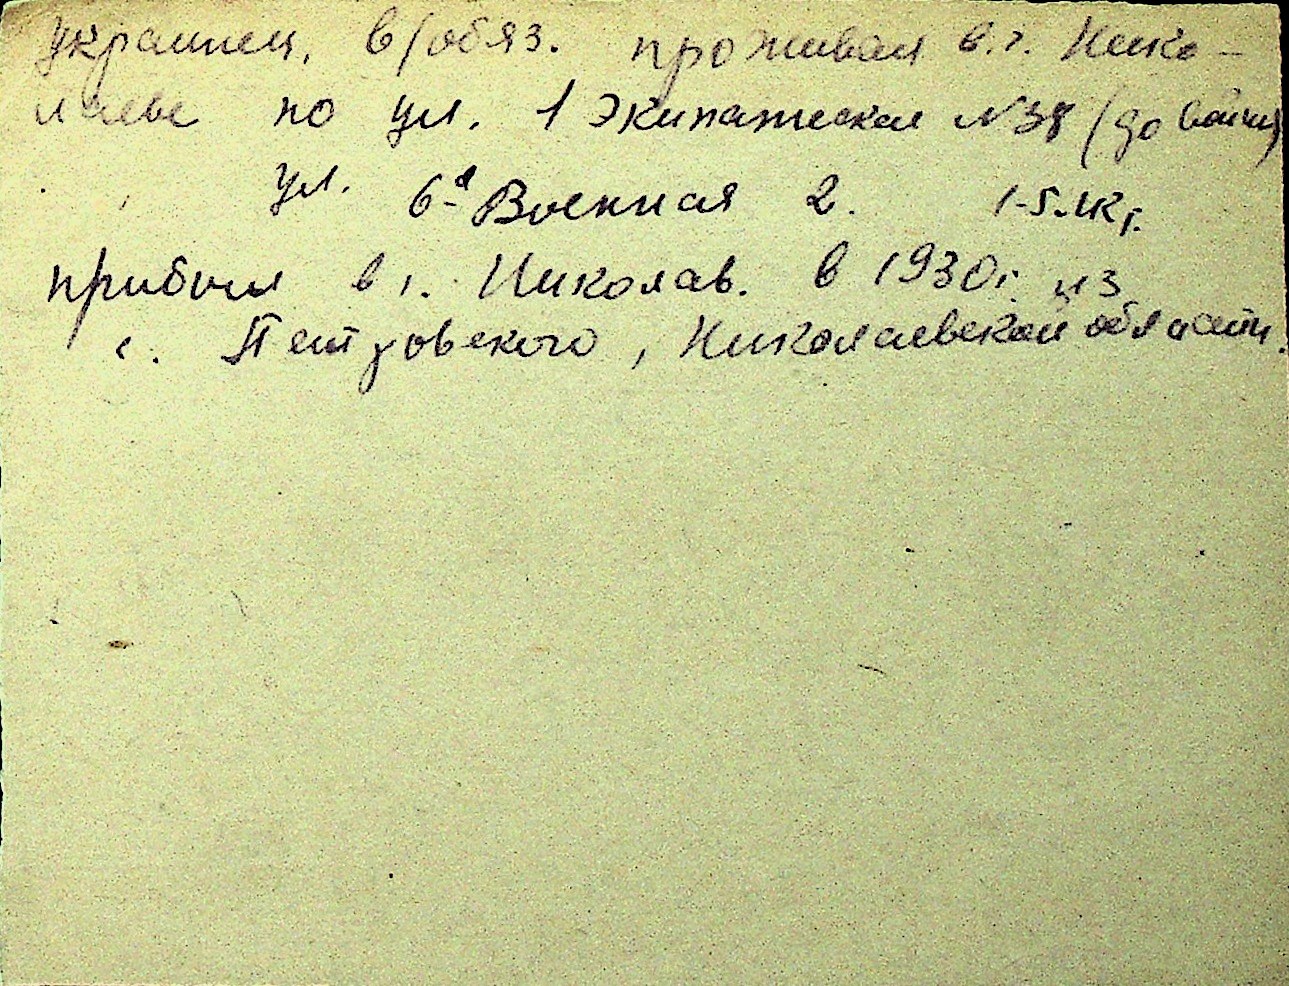 украинец, в/обяз. проживал в г. Нико-
лаеве по ул. 1 Экипажеская №38 (до войны)
ул. 6-я Военная 2.
прибыл в г. Николав. в 1930г. из
с. Петровского, Николаевской области.